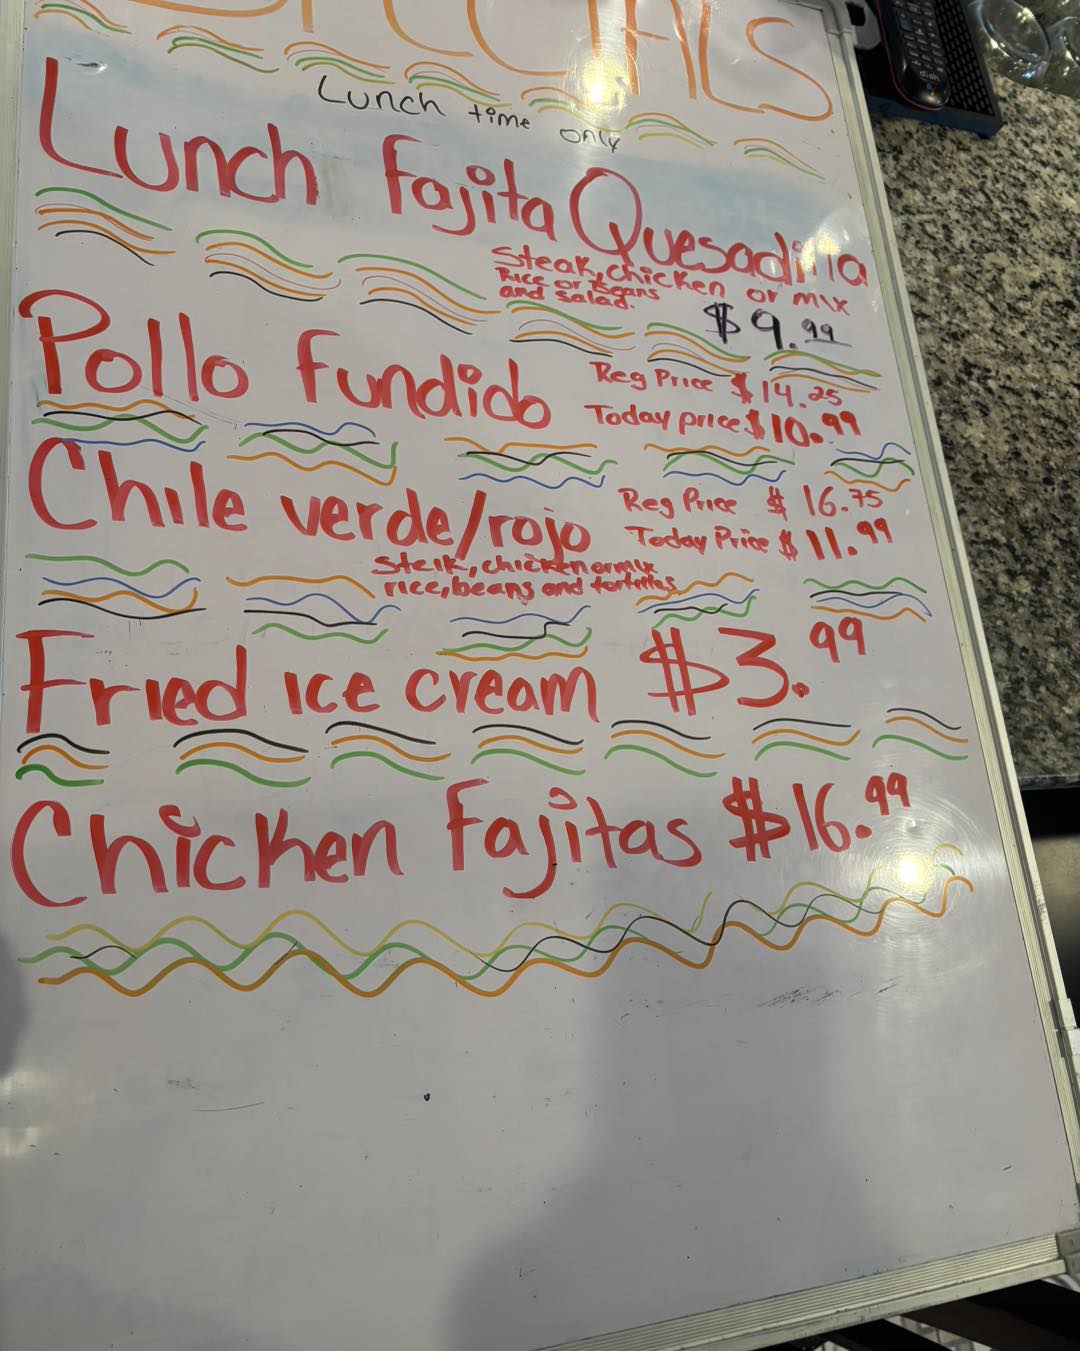 SPECIALS
Lunch time only
Lunch Fajita Quesadilla
Steak, chicken or mix
Rice or Beans
and salad.
$9.99
Pollo Fundido
Reg Price $14.25
Today price $10.99
Chile verde/rojo
Reg Price $16.75
Today Price $11.99
Steik, chicken or mix
rice, beans and tortillas
Fried ice cream $3.99
Chicken Fajitas $16.99
dish